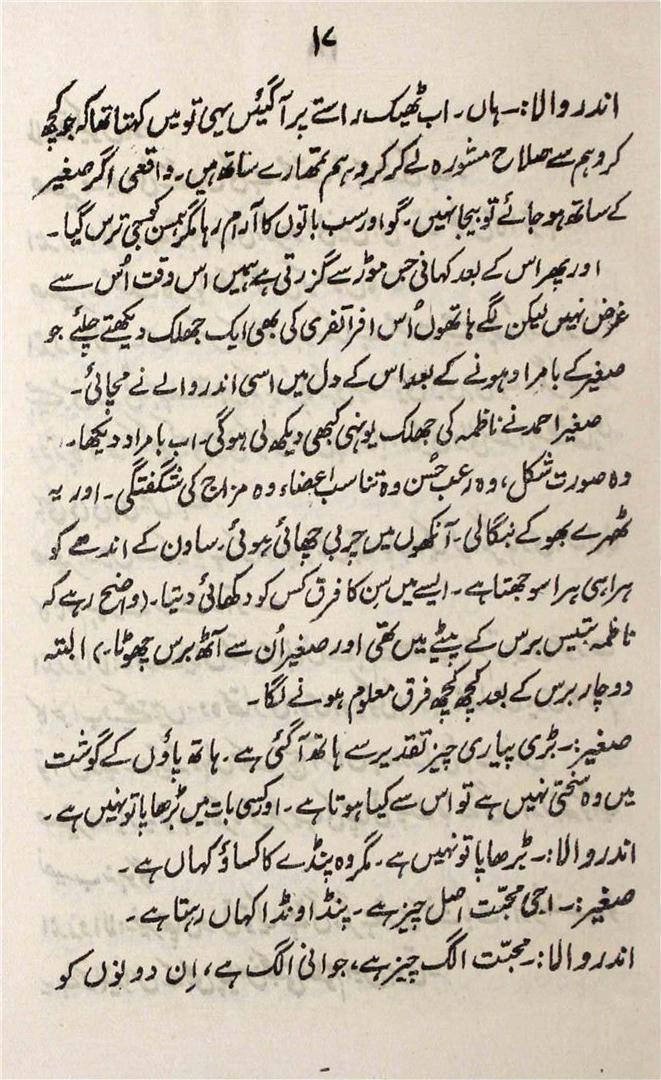 ۱۷
اندر والا:۔ ہاں۔ اب ٹھیک راستے پر آ گیئں یہی تو میں کہتا تھا کہ جو کچھ
کرو ہم سے صلاح مشورہ لے کر کرو ہم تمھارے ساتھ ہیں۔ واقعی اگر صغیر
کے ساتھ ہو جائے تو بیجا نہیں۔ گو اور سب باتوں کا آرام رہا مگر ہمسن کو جی ترس گیا۔
اور پھر اس کے بعد کہانی جس موڑ سے گزرتی ہے ہمیں اس وقت اُس سے
غرض نہیں لیکن لگے ہاتھوں اُس افراتفری کی بھی ایک جھلک دیکھتے چلئے جو
صغیر کے بامراد ہونے کے بعد اس کے دل میں اسی اندر والے نے مچائی۔
صغیر احمد نے ناظمہ کی جھلک یونہی کبھی دیکھ لی ہوگی۔ اب بامراد دیکھا۔
وہ صورت شکل، وہ رعب حُسن وہ تناسب اعضاء وہ مزاج کی شگفتگی۔ اور یہ
ٹھہرے بھوکے بنگالی۔ آنکھوں میں چربی چھائی ہوئی۔ ساون کے اندھے کو
ہرا ہی ہرا سوجھتا ہے۔ ایسے میں سِن کا فرق کس کو دکھائی دیتا۔ (واضح رہے کہ
ناظمہ بتیس برس کے پیٹے میں تھی اور صغیر اُن سے آٹھ برس چھوٹا۔) البتہ
دو چار برس کے بعد کچھ کچھ فرق معلوم ہونے لگا۔
صغیر:۔ بڑی پیاری چیز تقدیر سے ہاتھ آ گئی ہے۔ ہاتھ پاؤں کے گوشت
میں وہ سختی نہیں ہے تو اس سے کیا ہوتا ہے۔ اور کسی بات میں بڑھاپا تو نہیں ہے۔
اندر والا:۔ بڑھاپا تو نہیں ہے۔ مگر وہ پنڈے کا کساؤ کہاں ہے۔
صغیر:۔ اجی محبّت اصل چیز ہے۔ پنڈا ونڈا کہاں رہتا ہے۔
اندر والا:۔ محبّت الگ چیز ہے، جوانی الگ ہے، اِن دونوں کو